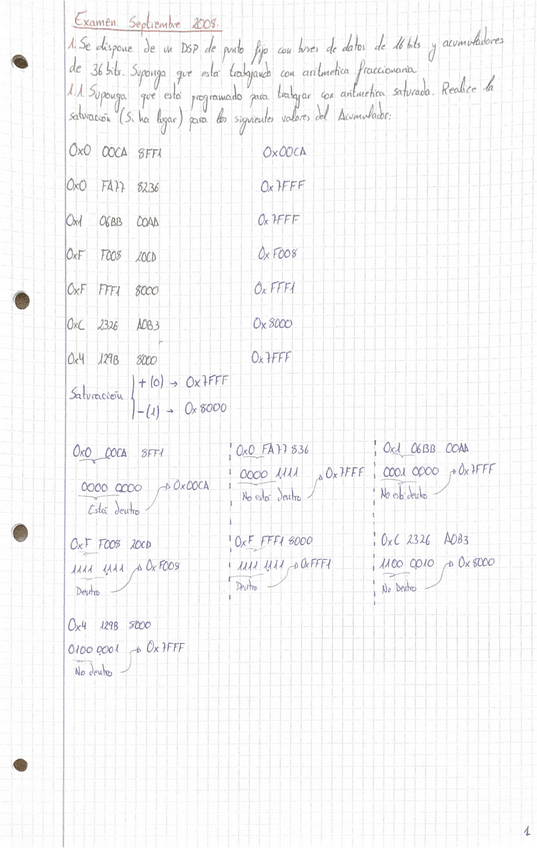 Examen Septiembre 2008.
1. Se dispone de un DSP de punto fijo con buses de datos de 16 bits y acumuladores
de 36 bits. Suponga que está trabajando con aritmetica fraccionaria
1.1. Suponga que está programado para trabajar con aritmetica saturada. Realice la
saturación (Si ha lugar) para los siguientes valores del Acumulador:
0x0 00CA 8FF1 0x00CA
0x0 FA77 8236 0x7FFF
0x1 06BB 00AA 0x7FFF
0xF F008 20CD 0xF008
0xF FFF1 8000 0xFFF1
0xC 2326 A0B3 0x8000
0x4 129B 8000 0x7FFF
Saturación +(0) → 0x7FFF
-(1) → 0x8000
0x0 00CA 8FF1 0x0 FA77 836 0x1 06BB 00AA
0000 0000 → 0x00CA 0000 1111 → 0x7FFF 0001 0000 → 0x7FFF
Está dentro No está dentro No está dentro
0xF F008 20CD 0xF FFF1 8000 0xC 2326 A0B3
1111 1111 → 0xF008 1111 1111 → 0xFFF1 1100 0010 → 0x8000
Dentro Dentro No Dentro
0x4 129B 8000
0100 0001 → 0x7FFF
No dentro
1